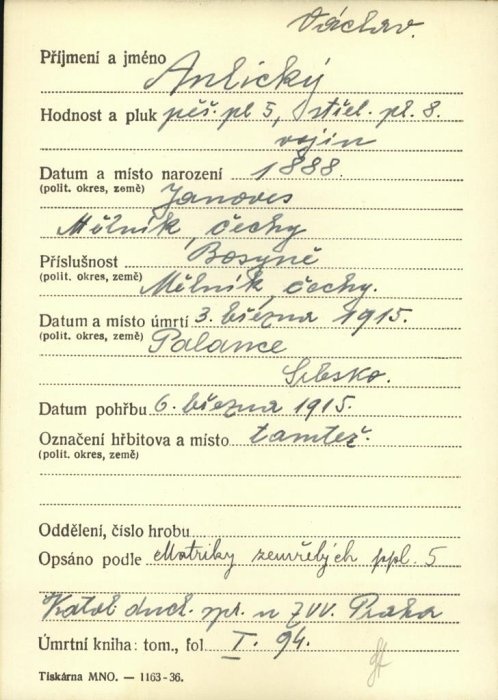 Václav.
Příjmení a jméno Anlický
Hodnost a pluk pěš. pl 5, střel. pl. 8.
vojín
Datum a místo narození 1888.
(polit. okres, země) Janoves
Mělník, čechy
Příslušnost Bosyně
(polit. okres, země) Mělník, čechy.
Datum a místo úmrtí 3. března 1915.
(polit. okres, země) Palance
Srbsko.
Datum pohřbu 6. března 1915.
Označení hřbitova a místo tamtež.
(polit. okres, země)
Oddělení, číslo hrobu
Opsáno podle Matriky zemřelých ppl. 5
Katol duch. spr. u ZVV. Praha
Úmrtní kniha: tom., fol I. 94.
Tiskárna MNO. — 1163-36.